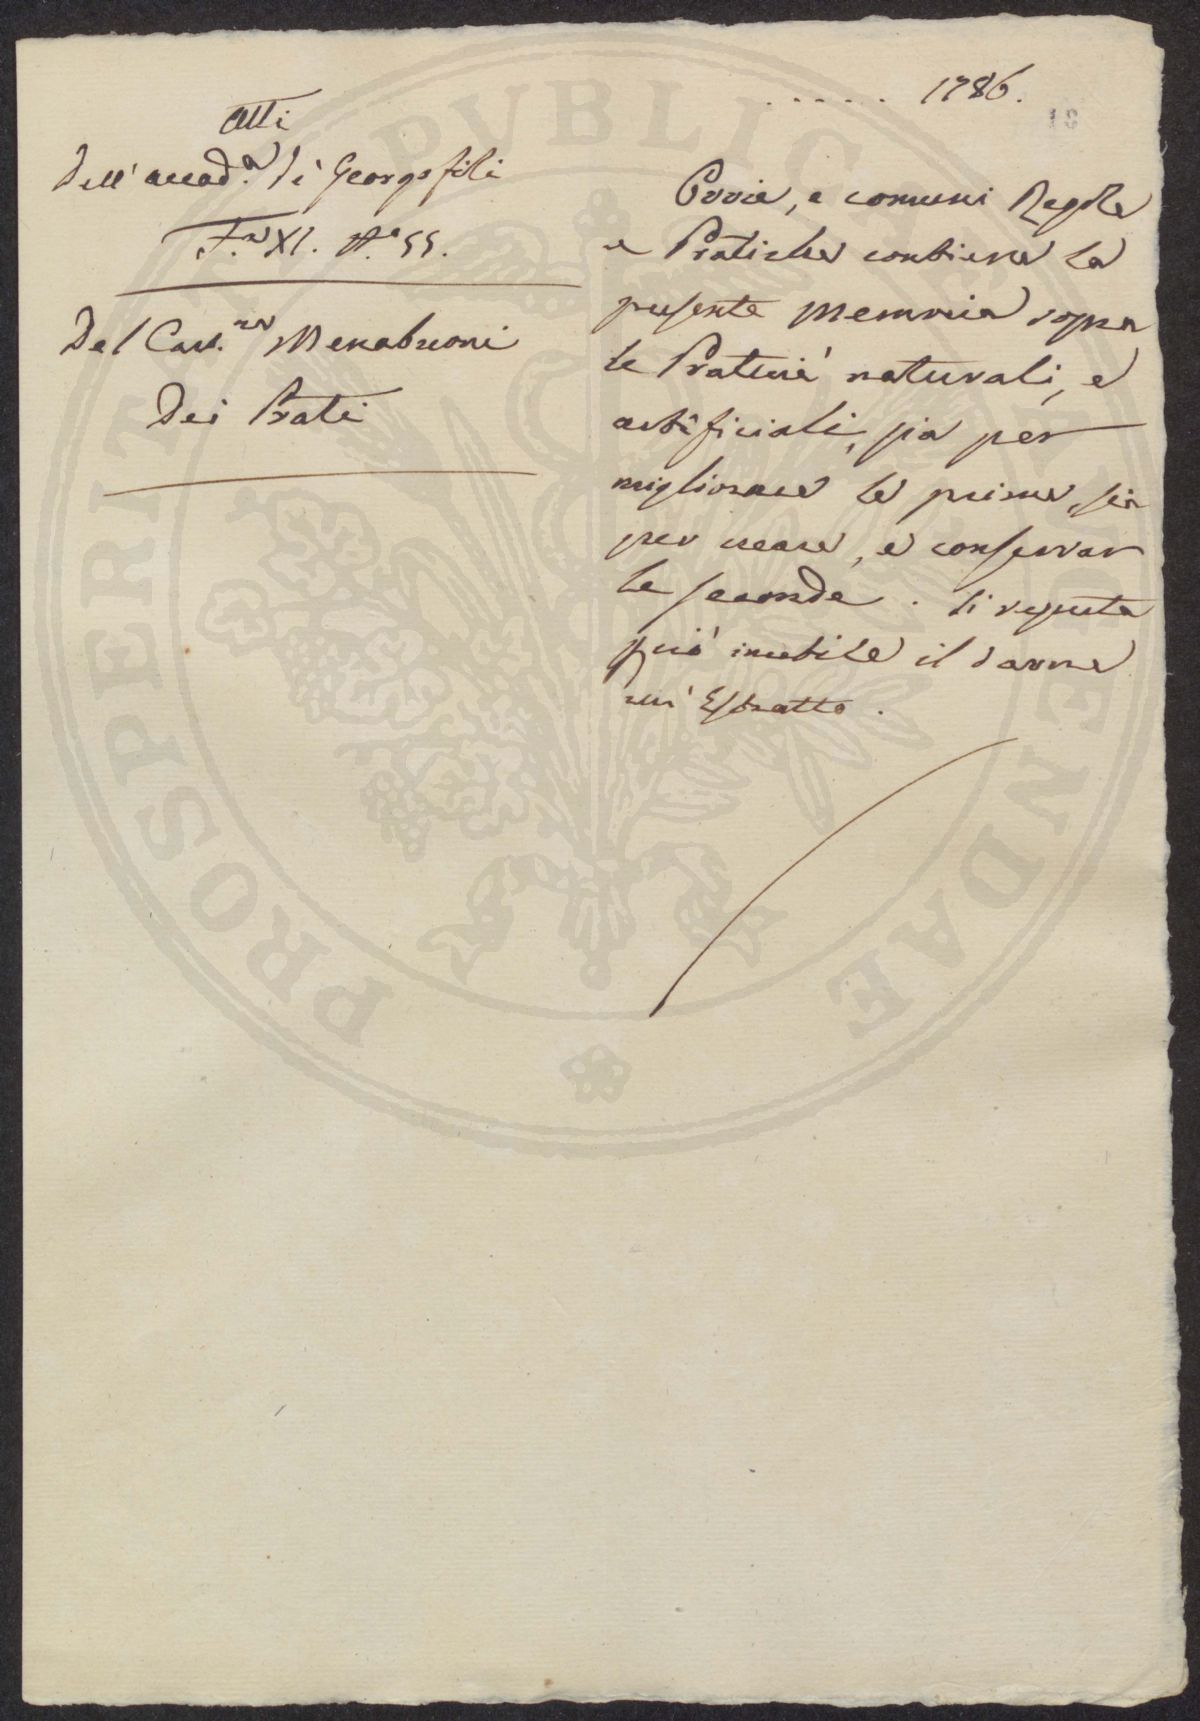 ..... 1786.
Atti
dell' accad.a di Georgofili
F.za XI. N.o 55.
Del Cav.re Menabuoni
Dei Prati
Ovvie, e comuni Regole
e Pratiche contiene la
presente Memoria sopra
le Praterie naturali, e
artificiali, sia per
migliorare le prime, sia
per creare, e conservar
le seconde. Si reputa
però inutile il darne
un' Estratto.
PROSPERITATI PVBLICAE AVGENDAE